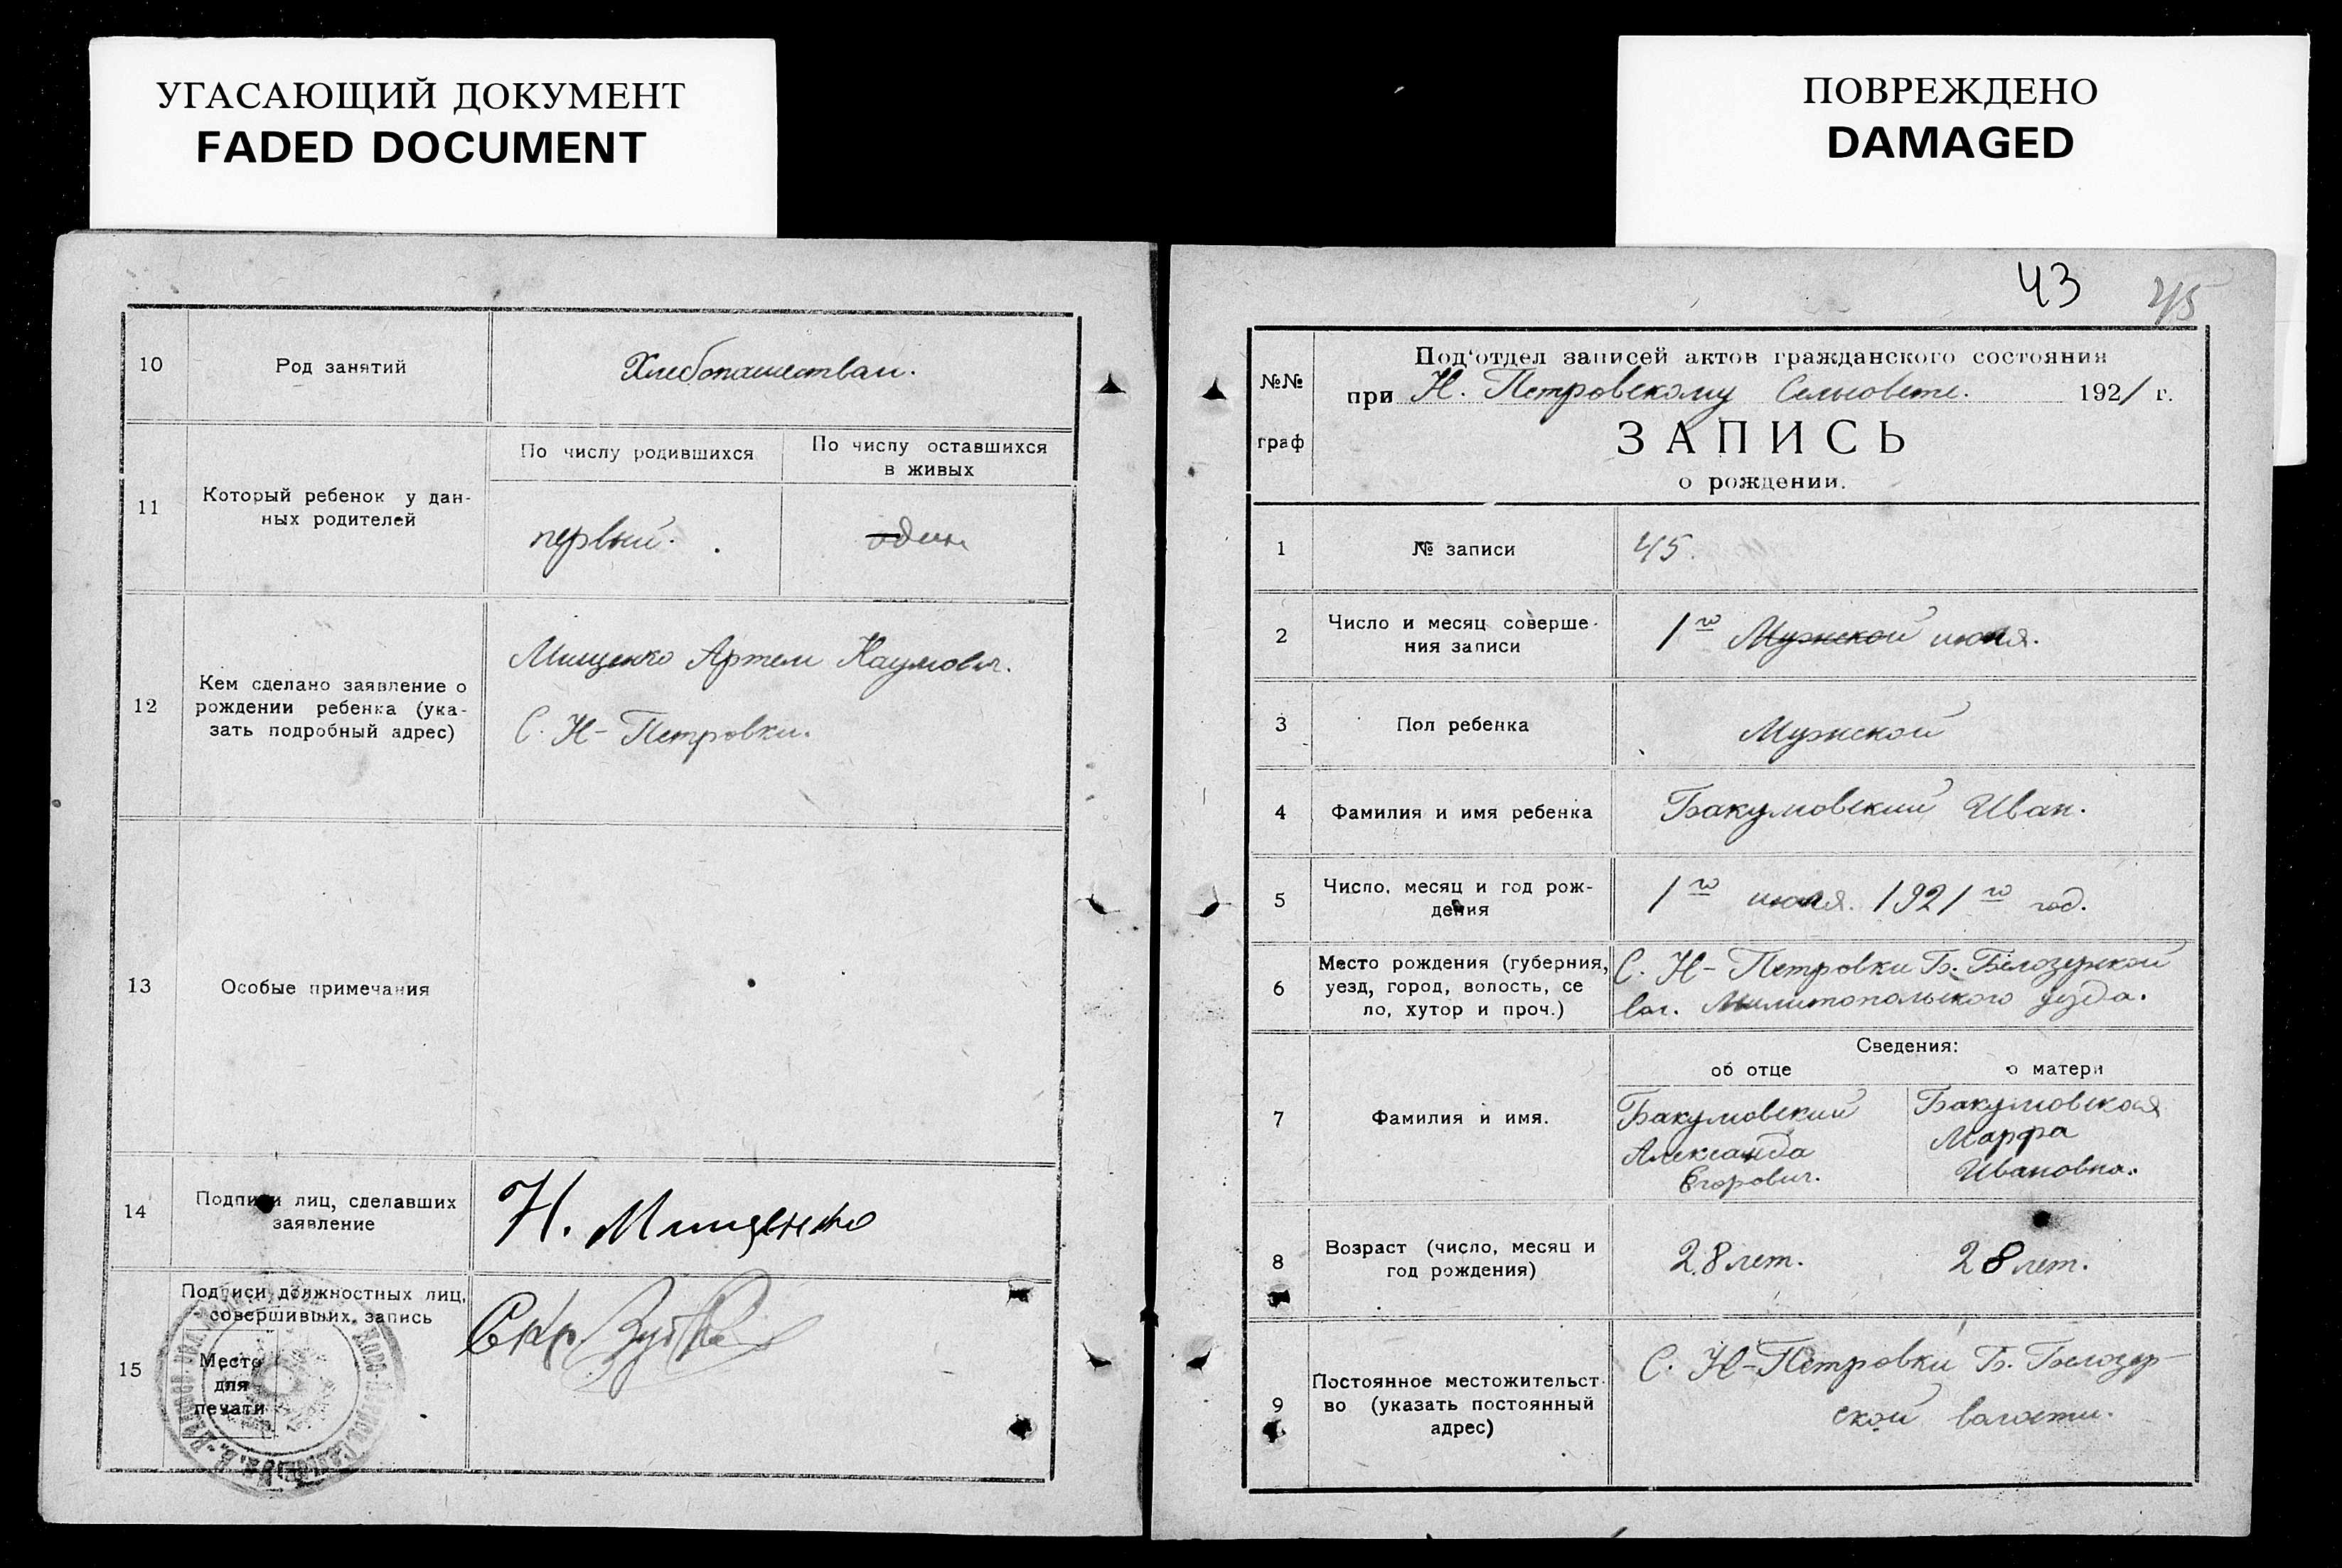 УГАСАЮЩИЙ ДОКУМЕНТ
FADED DOCUMENT
ПОВРЕЖДЕНО
DAMAGED
10
Род занятий
Хлебопашеством.
11
Который ребенок у дан-
ных родителей
По числу родившихся
По числу оставшихся
в живых
первый.
один
12
Кем сделано заявление о
рождении ребенка (ука-
зать подробный адрес)
Мищенко Артем Наумович.
С. Н-Петровки.
13
Особые примечания
14
Подписи лиц, сделавших
заявление
Н. Мищенко
15
Подписи должностных лиц,
совершивших запись
Место
для
печати
Скр.
43
45
№№
граф
Под'отдел записей актов гражданского состояния
при Н. Петровскому Сельсовете. 1921 г.
ЗАПИСЬ
о рождении.
1
№ записи
45.
2
Число и месяц соверше-
ния записи
1го Мужской июля.
3
Пол ребенка
Мужской
4
Фамилия и имя ребенка
Бакумовский Иван.
5
Число, месяц и год рож-
дения
1го июля. 1921го год.
6
Место рождения (губерния,
уезд, город, волость, се
ло, хутор и проч.)
С. Н-Петровки Б. Белозерской
вол. Милитопольского уезда.
7
Фамилия и имя.
Сведения:
об отце
о матери
Бакумовский
Александа
Егорович.
Бакумовская
Марфа
Ивановна.
8
Возраст (число, месяц и
год рождения)
28 лет.
28 лет.
9
Постоянное местожительст-
во (указать постоянный
адрес)
С. Н-Петровки Б. Белозер-
ской валости.